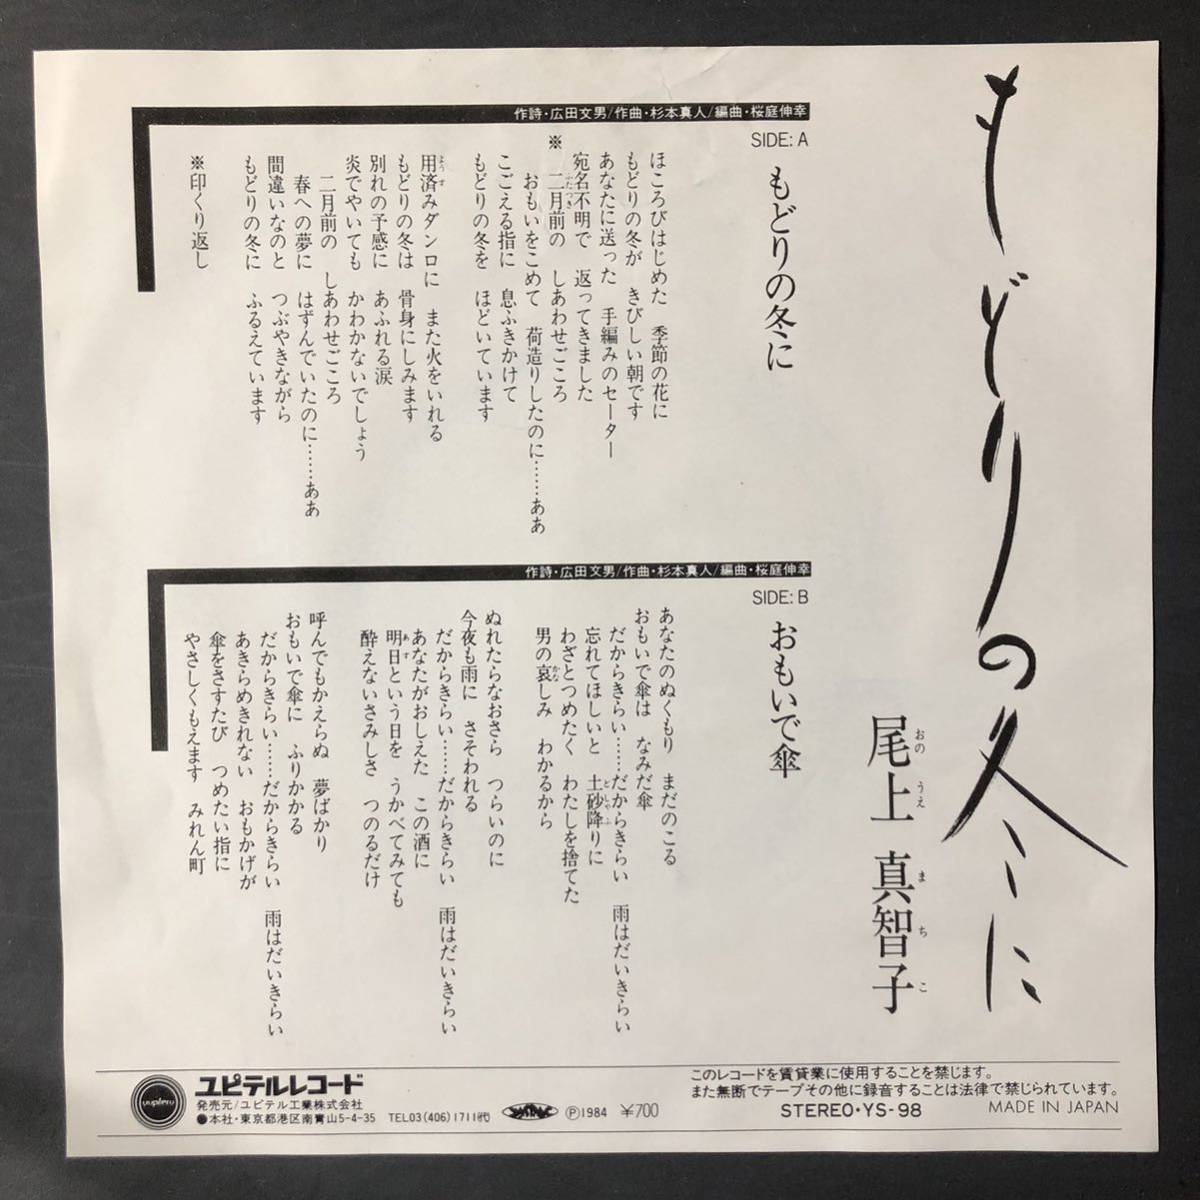 もどりの冬に
尾上 真智子
おのうえ まちこ
作詩・広田文男/作曲・杉本真人/編曲・桜庭伸幸
SIDE: A
もどりの冬に
ほころびはじめた 季節の花に
もどりの冬が きびしい朝です
あなたに送った 手編みのセーター
宛名不明で 返ってきました
※ 二月前の しあわせごころ
ふたつき
おもいをこめて 荷造りしたのに……ああ
こごえる指に 息ふきかけて
もどりの冬を ほどいています
用済みダンロに また火をいれる
ようず
もどりの冬は 骨身にしみます
別れの予感に あふれる涙
炎でやいても かわかないでしょう
二月前の しあわせごころ
春への夢に はずんでいたのに……ああ
間違いなのと つぶやきながら
もどりの冬に ふるえています
※印くり返し
作詩・広田文男/作曲・杉本真人/編曲・桜庭伸幸
SIDE: B
おもいで傘
あなたのぬくもり まだのこる
おもいで傘は なみだ傘
だからきらい……だからきらい 雨はだいきらい
忘れてほしいと 土砂降りに
どしゃふ
わざとつめたく わたしを捨てた
男の哀しみ わかるから
かな
ぬれたらなおさら つらいのに
今夜も雨に さそわれる
だからきらい……だからきらい 雨はだいきらい
あなたがおしえた この酒に
明日という日を うかべてみても
あす
酔えないさみしさ つのるだけ
呼んでもかえらぬ 夢ばかり
おもいで傘に ふりかかる
だからきらい……だからきらい 雨はだいきらい
あきらめきれない おもかげが
傘をさすたび つめたい指に
やさしくもえます みれん町
yupiteru
ユピテルレコード
発売元/ユピテル工業株式会社
●本社・東京都港区南青山5-4-35 TEL03(406)1711㈹
JASRAC
Ⓟ1984 ¥700
このレコードを賃貸業に使用することを禁じます。
また無断でテープその他に録音することは法律で禁じられています。
STEREO・YS-98 MADE IN JAPAN